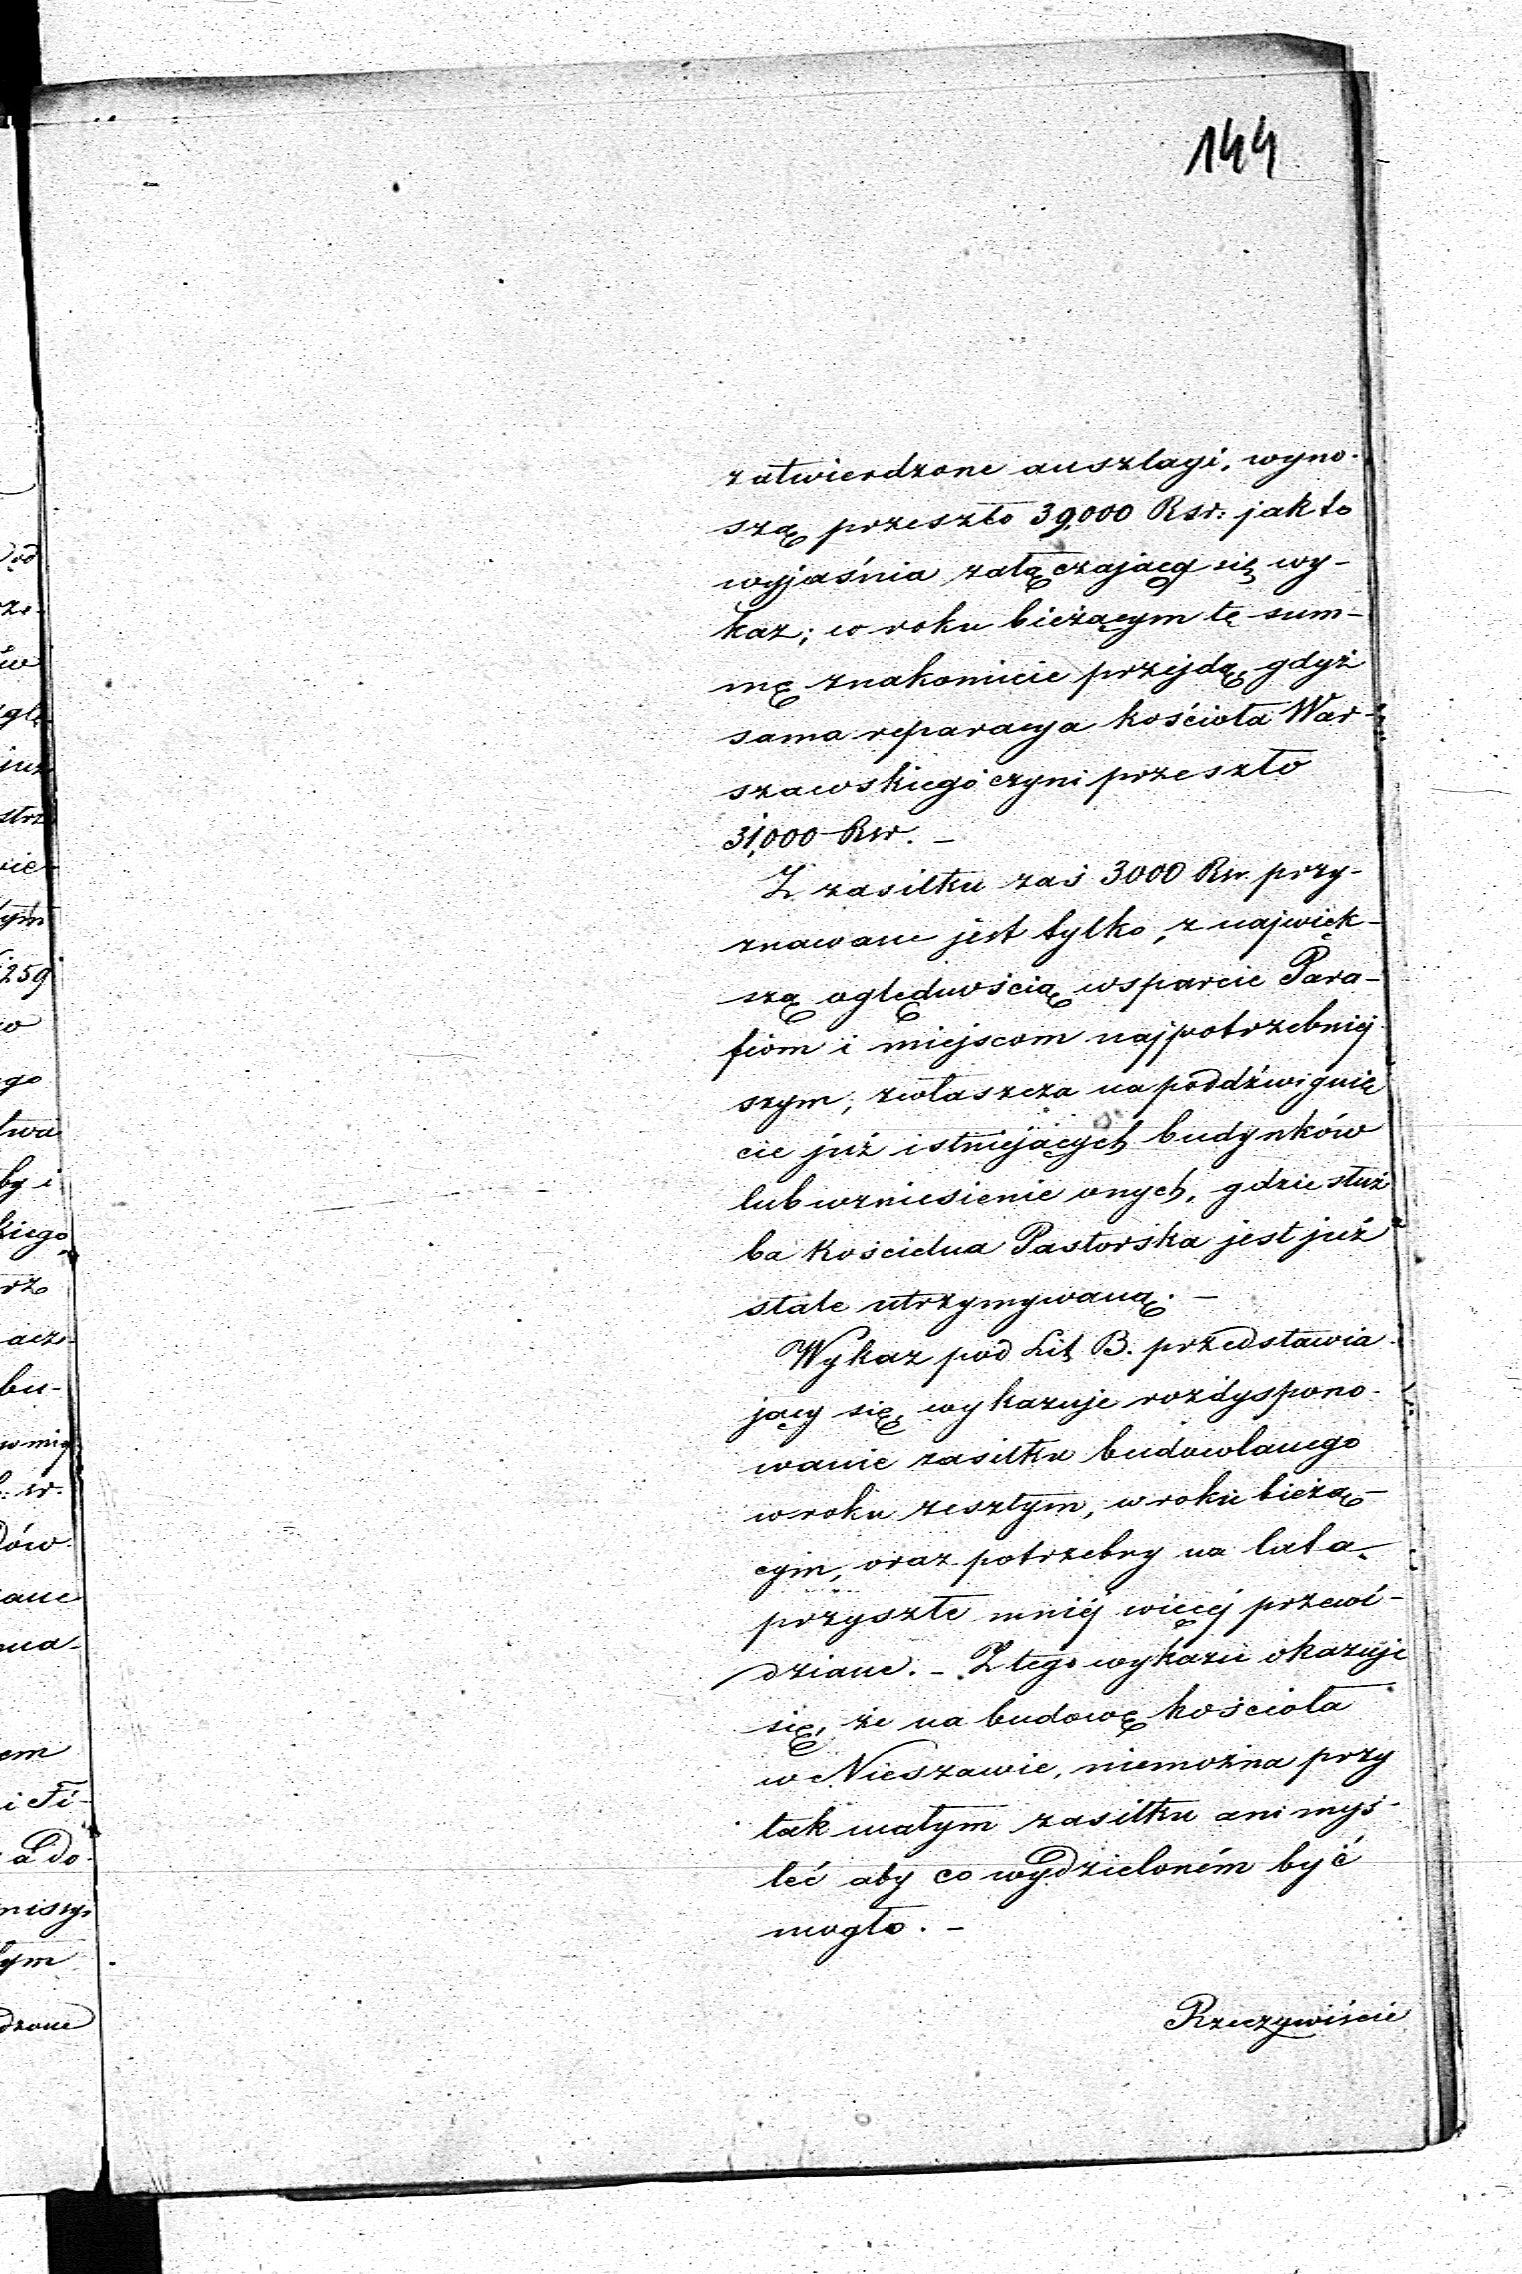 144
zatwierdzone auszlagi, wyno-
szą przeszło 39,000 Rsr: jak to
wyjaśnia załączający się wy-
kaz; w roku bieżącym tę sum-
mę znakomicie przejdą, gdyż
sama reparacya kościoła War-
szawskiego czyni przeszło
31,000 Rsr. –
Z zasiłku zaś 3000 Rsr. przy-
znawane jest tylko, z najwięk-
szą oględnością wsparcie Para-
fiom i miejscom najpotrzebniej-
szym, zwłaszcza na poddźwignię
cie już istniejących budynków
lub wzniesienie onych, gdzie służ
ba Kościelna Pastorska jest już
stale utrzymywaną. –
Wykaz pod Lit. B. przedstawia-
jący się, wykazuje rozdyspono-
wanie zasiłku budowlanego
w roku zeszłym, w roku bieżą-
cym, oraz potrzebny na lata
przyszłe mniéj więcéj przewi-
dziane. – Z tego wykazu okazuje
się, że na budowę kościoła
w Nieszawie, niemożna przy
tak małym zasiłku ani myś-
leć aby co wydzieloném być
mogło. –
Rzeczywiście